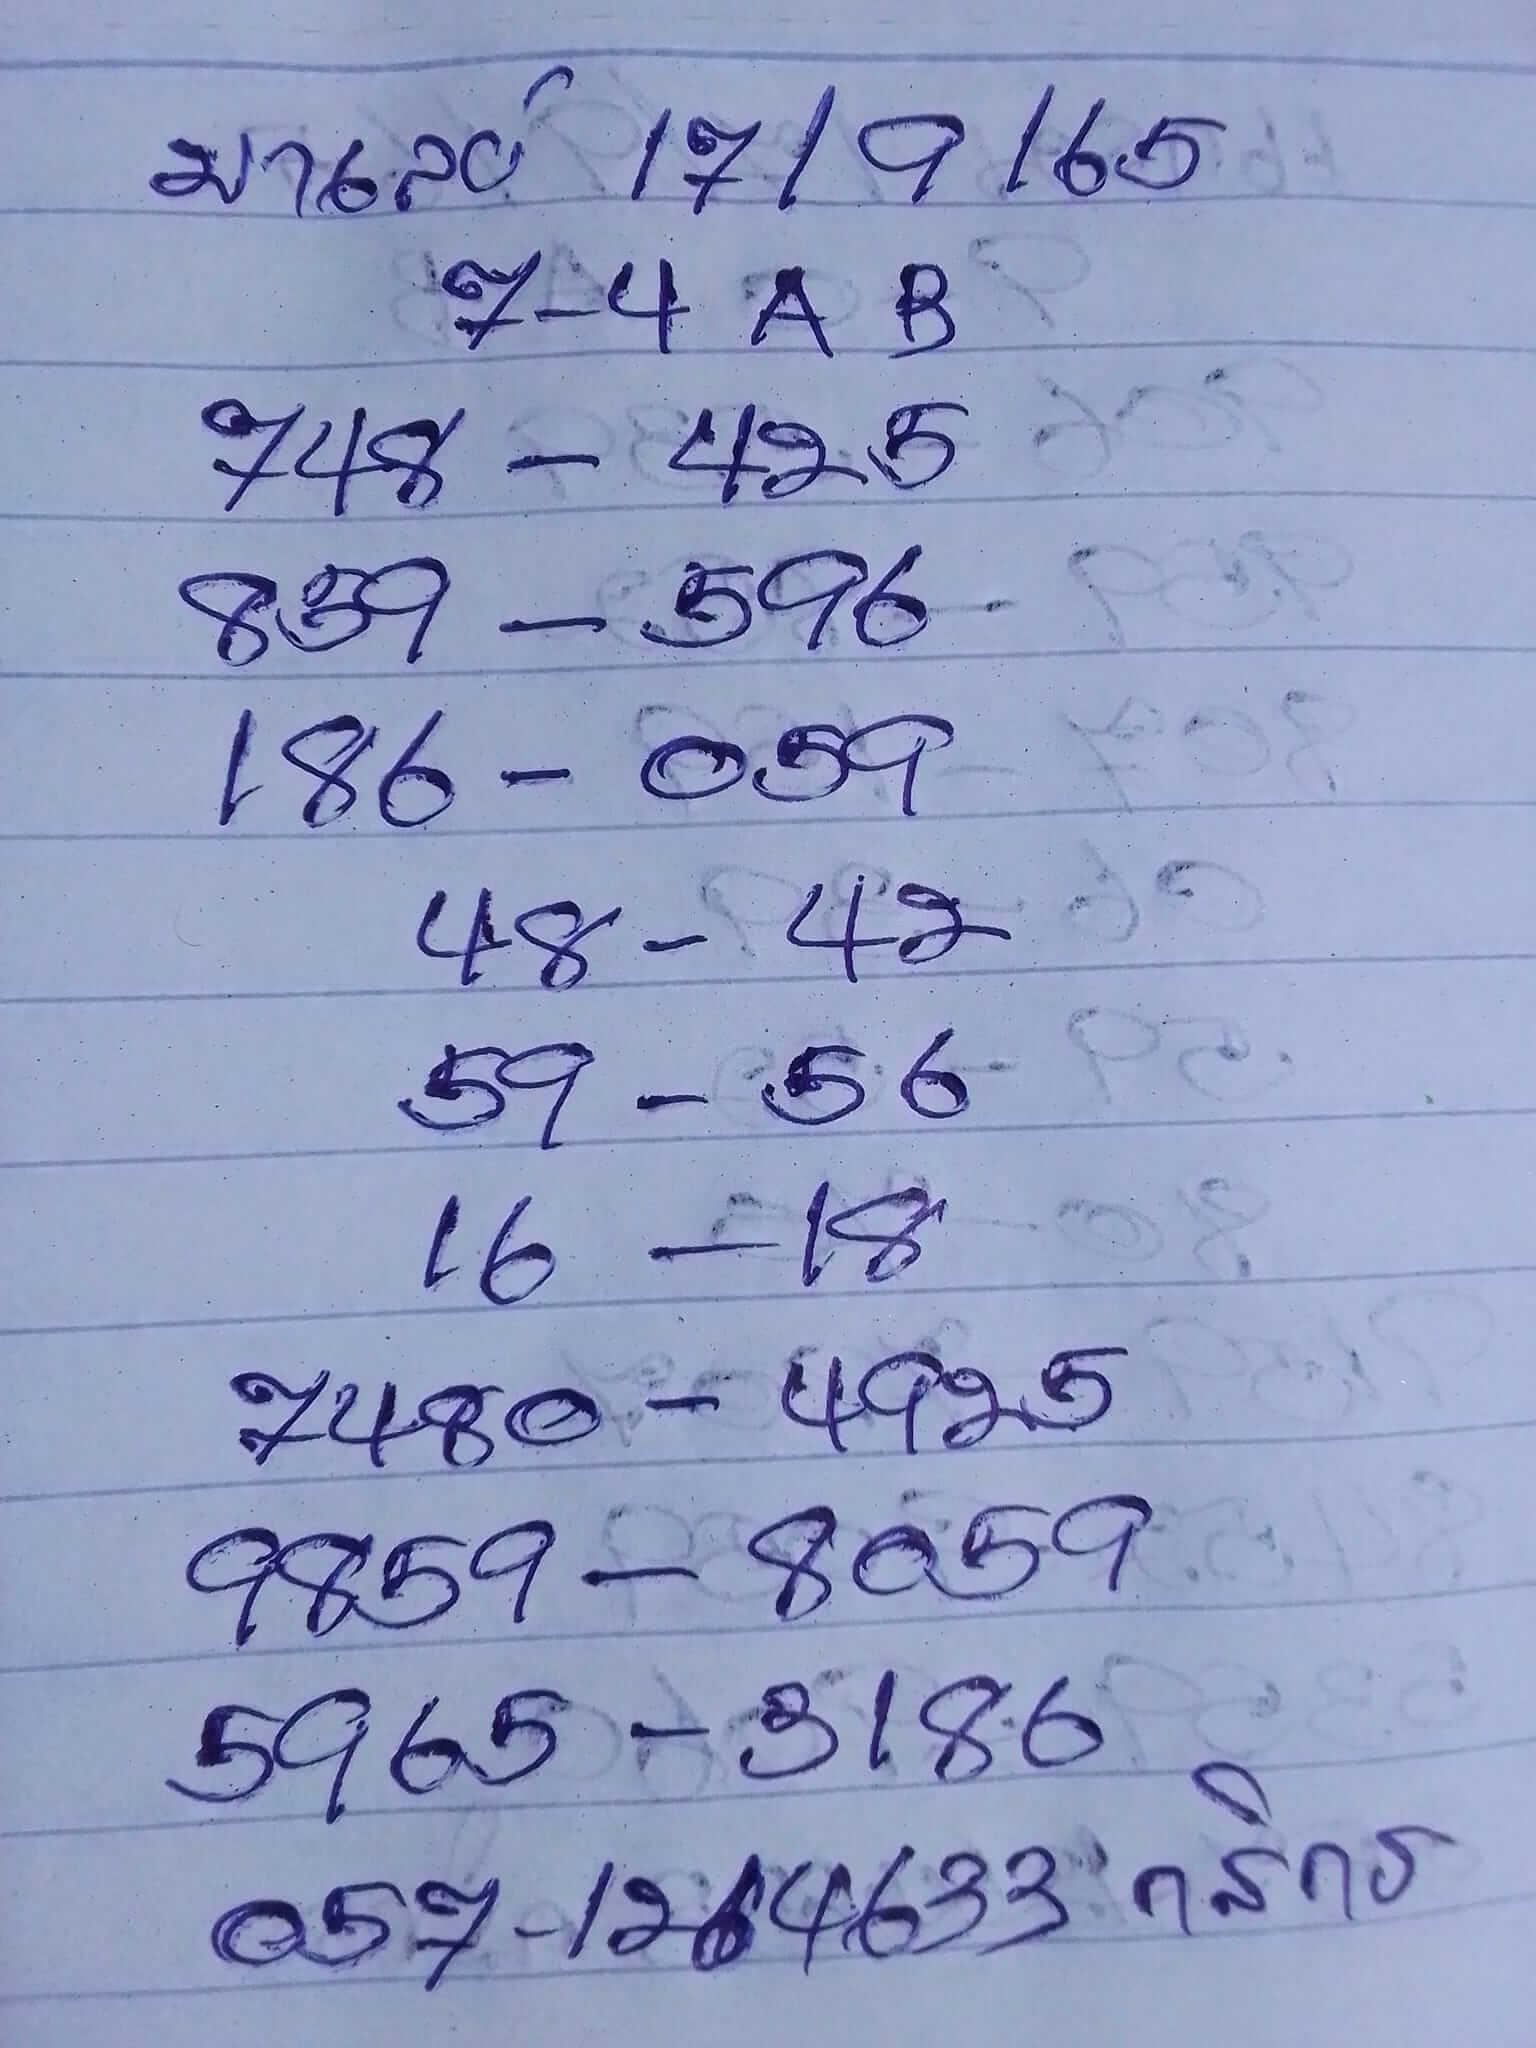 มาเลย์ 17/9/65
7-4 A B
748 - 425
859 - 596
186 - 059
48 - 42
59 - 56
16 - 18
7480 - 4925
9859 - 8059
5965 - 3186
057-1264633 กสิกร